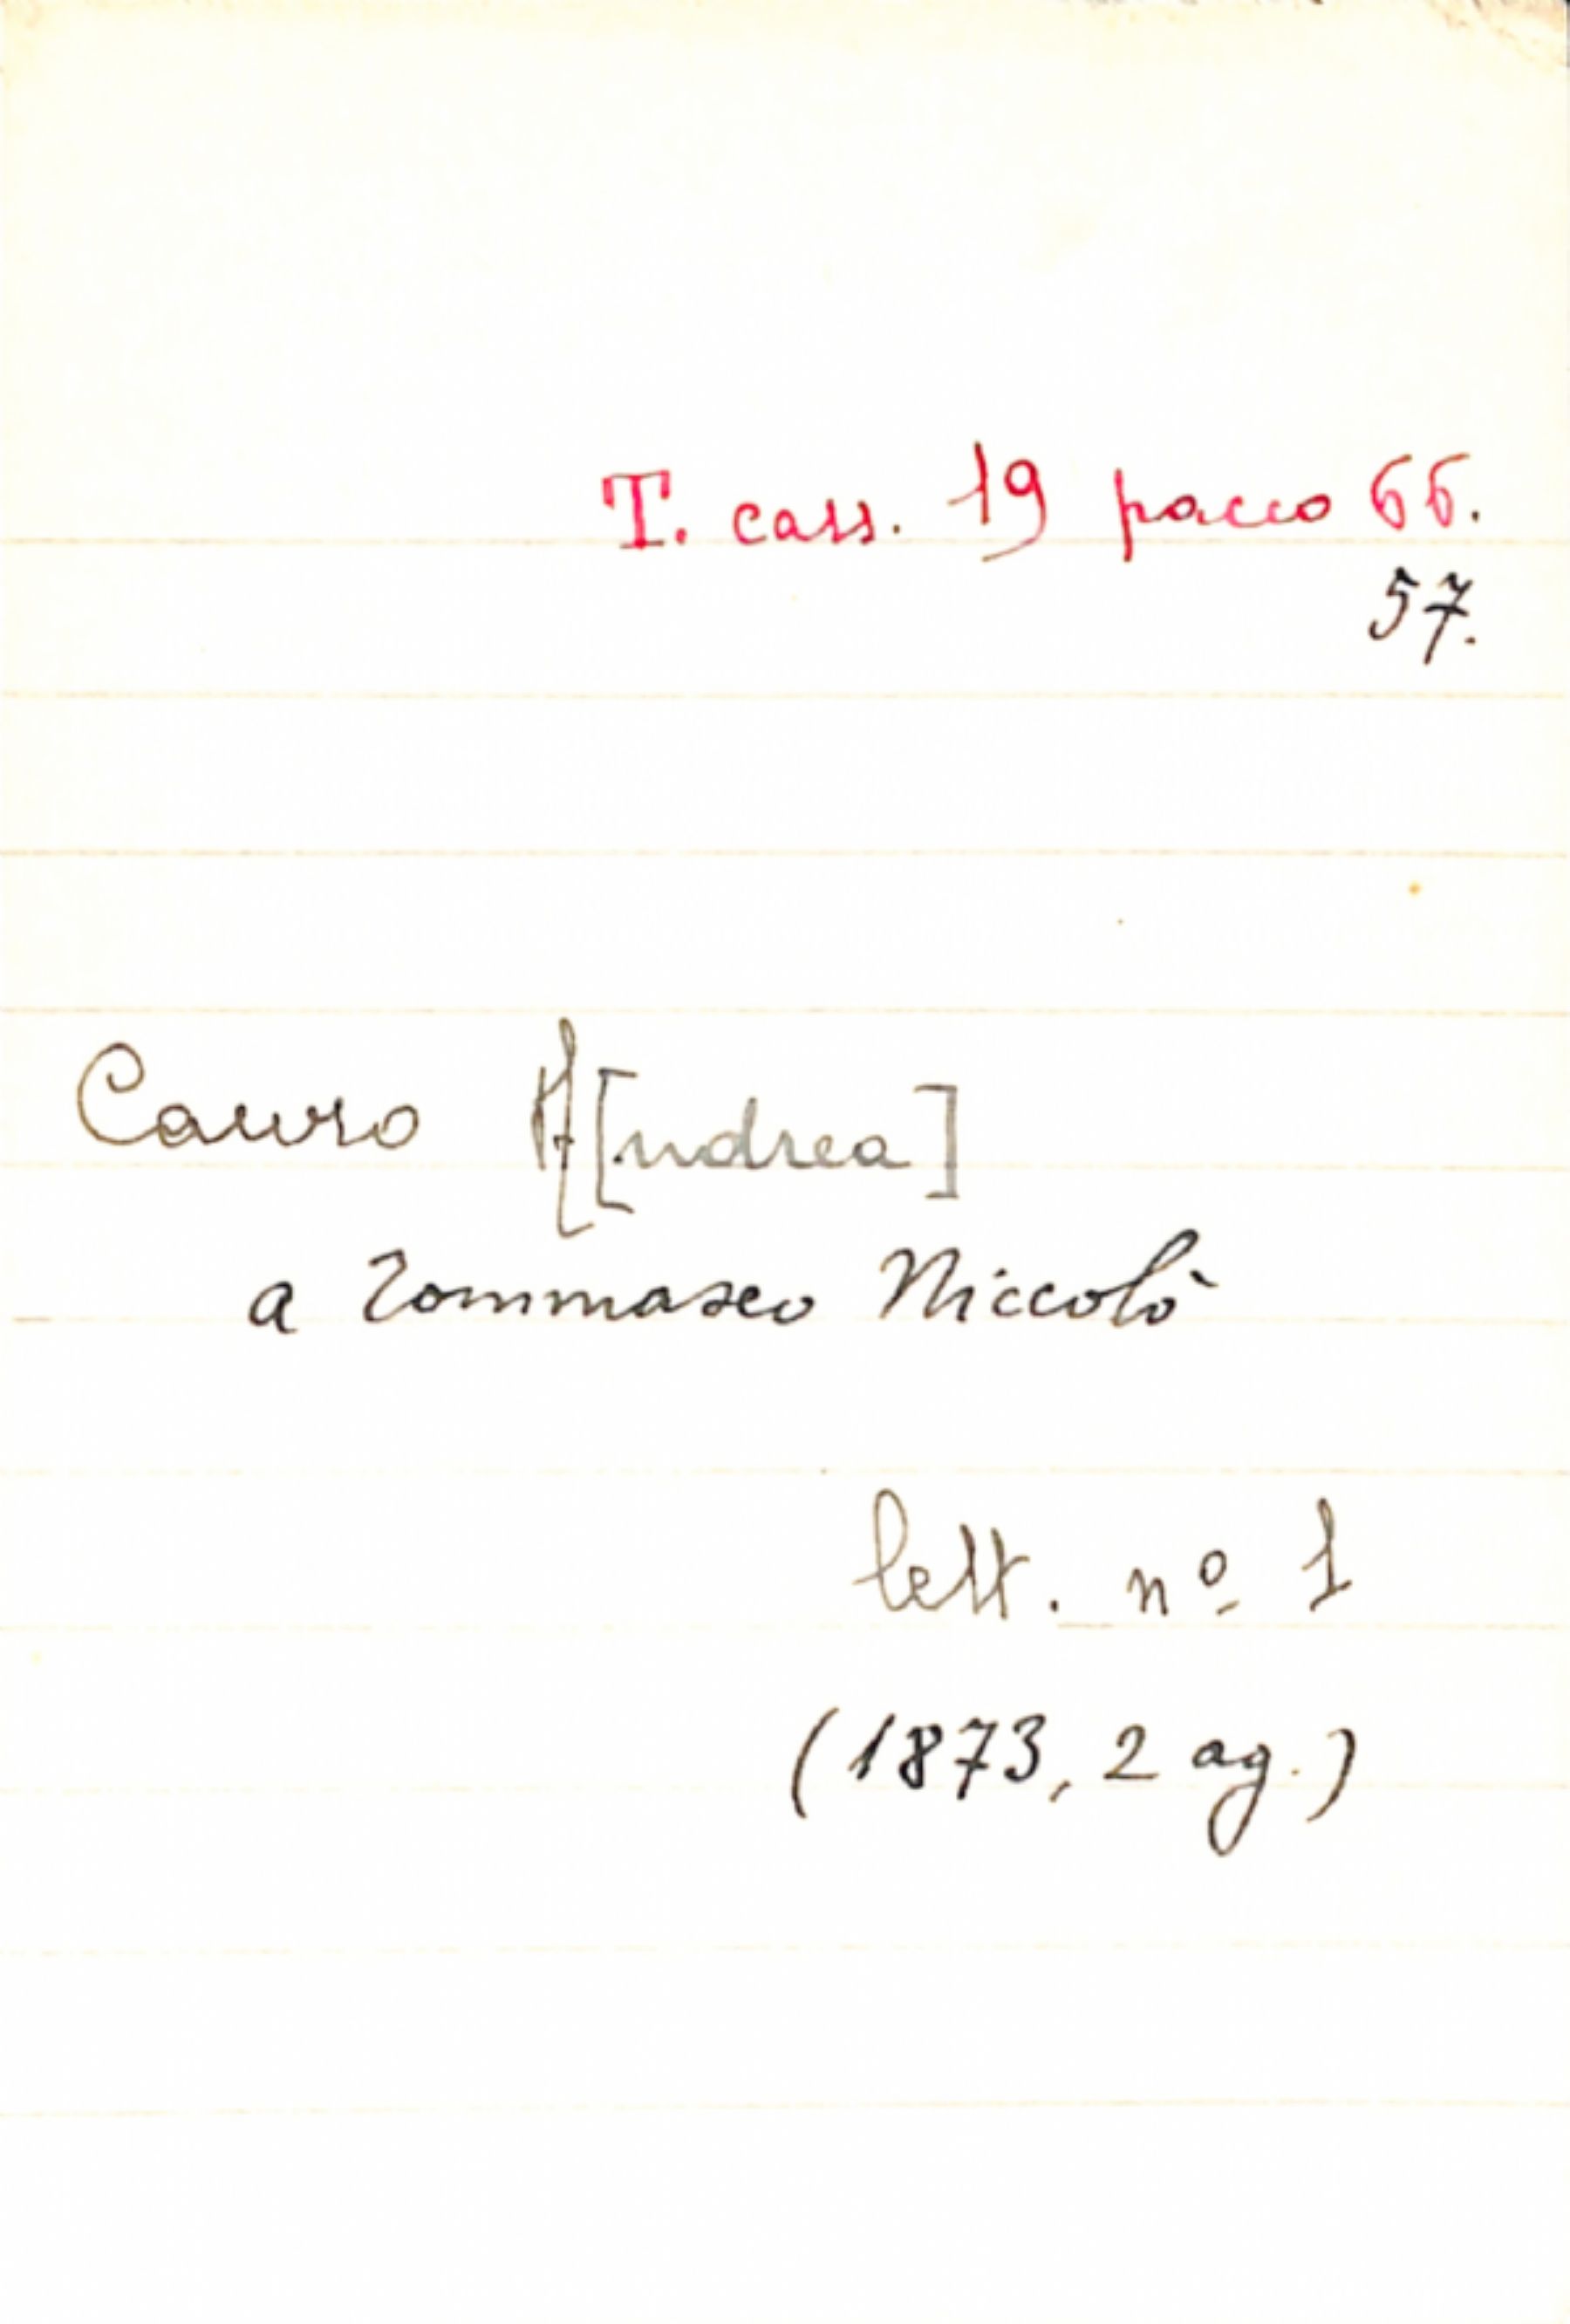 T. cass. 19 pacco 66.
57.
Cauro A[ndrea]
a Tommaseo Niccolò
lett. nº 1
(1873, 2 ag.)